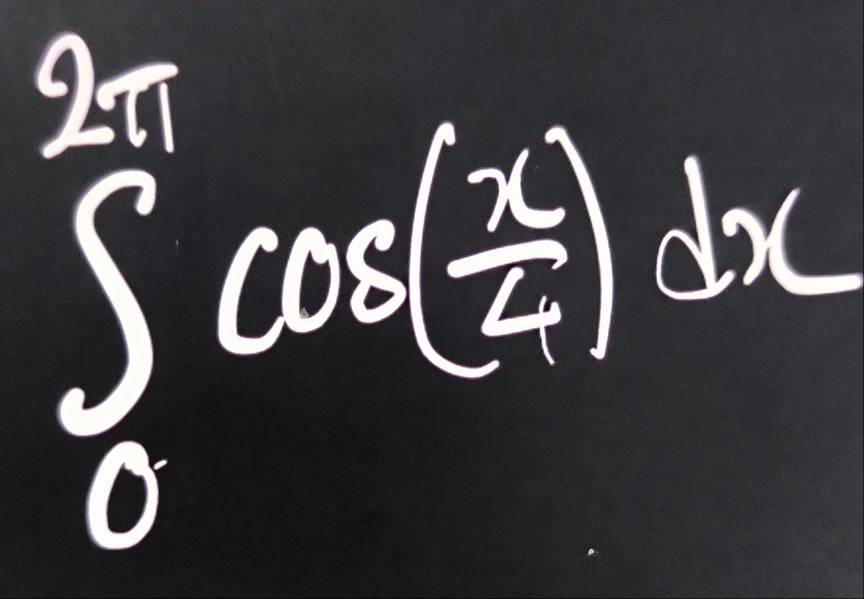 2π
∫ cos(x/4) dx
0